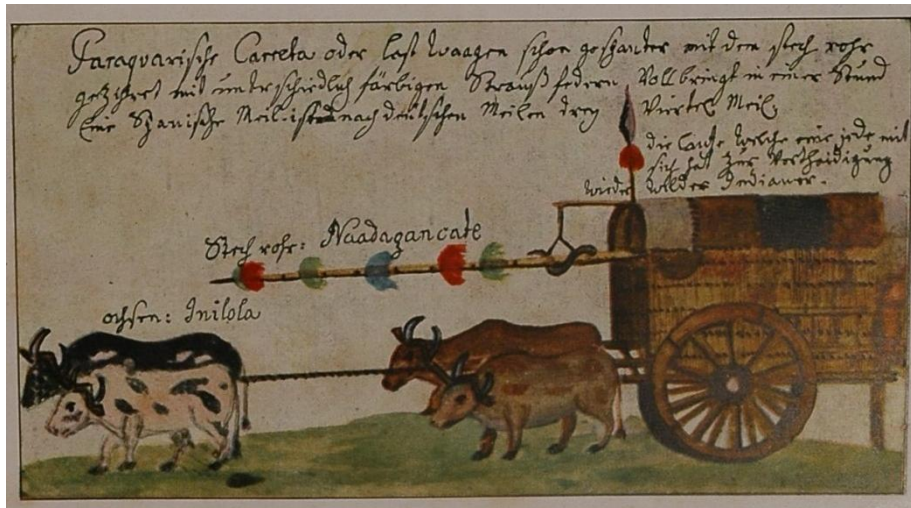 Paraqvarische Carreta oder last Waagen schon gespanter mit dem stech rohr
geziehret mit unterschiedlich färbigen Strauß federn, Vollbringt in einer Stund
Eine Spanische Meil ist nach deütschen Meilen drey Viertel Meil.
die lantze welche eine jede mit
sich hat zur Vertheidigung
wieder wilder Indianer.
Stech rohr: Naadagancate
ochsen: Inilola